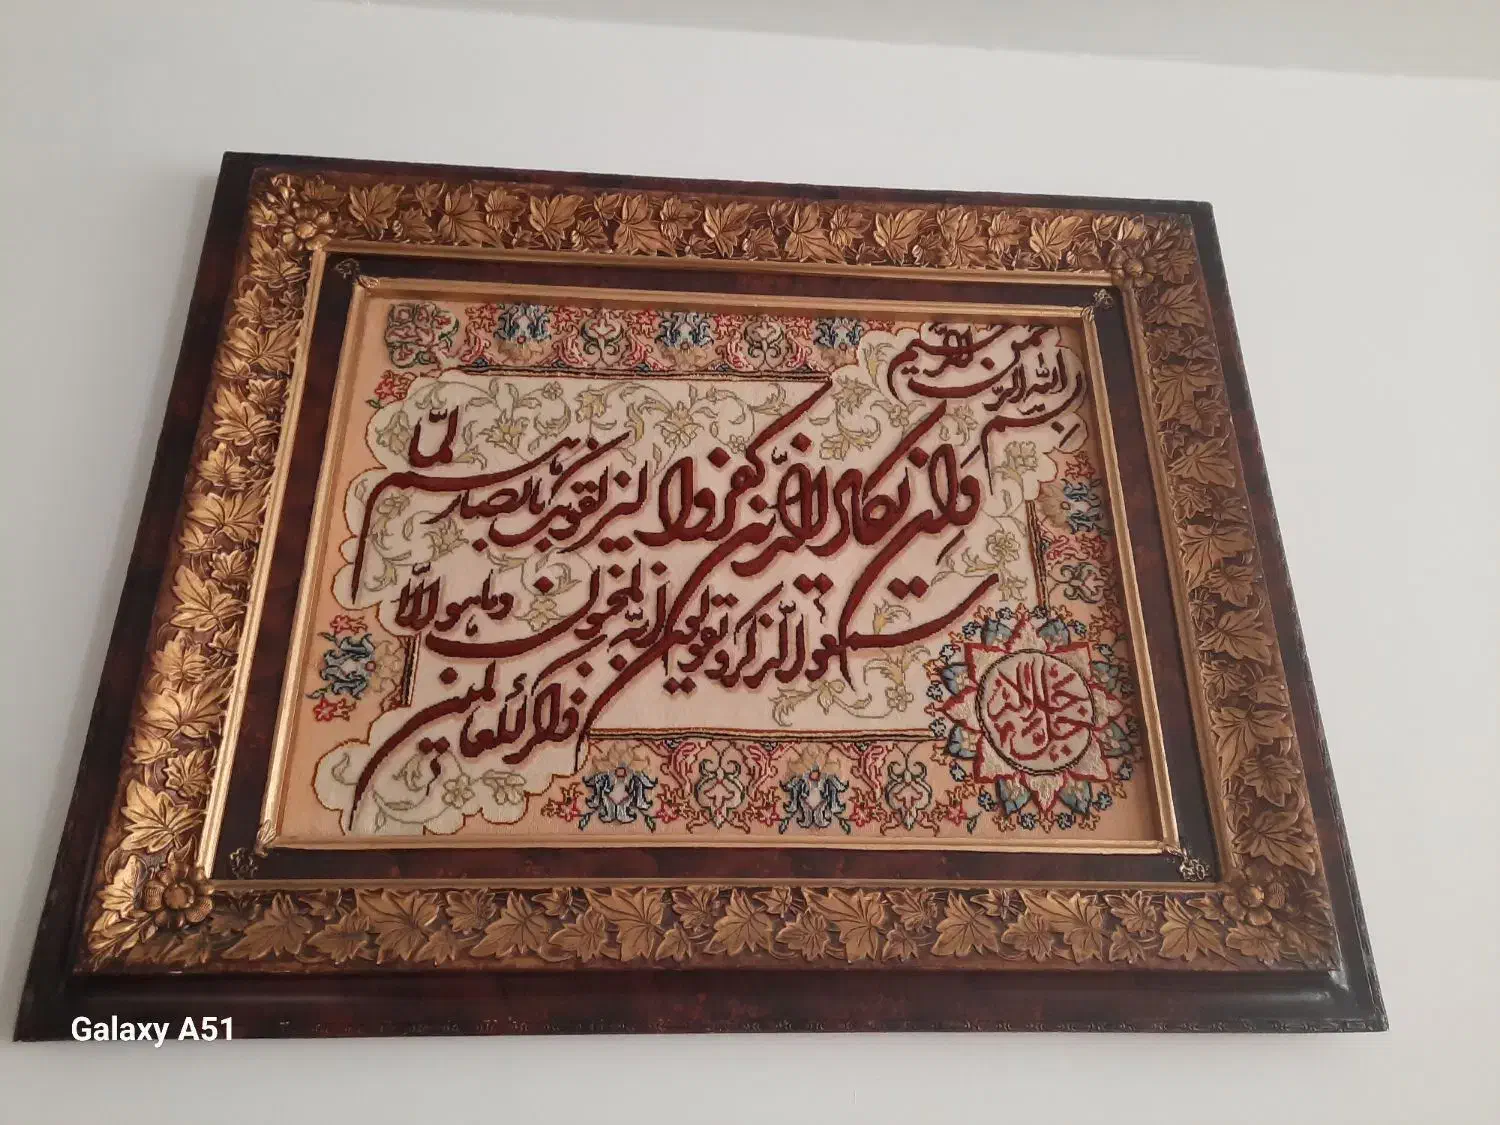 بسم الله الرحمن الرحیم
وَاِن یکاد الّذین کفروا لیزلقونک بابصارهم لمّا
سمعوا الذّکر و یقولون انّه لمجنون و ما هو الّا
ذکرٌ للعالمین
الله جل جلاله
Galaxy A51